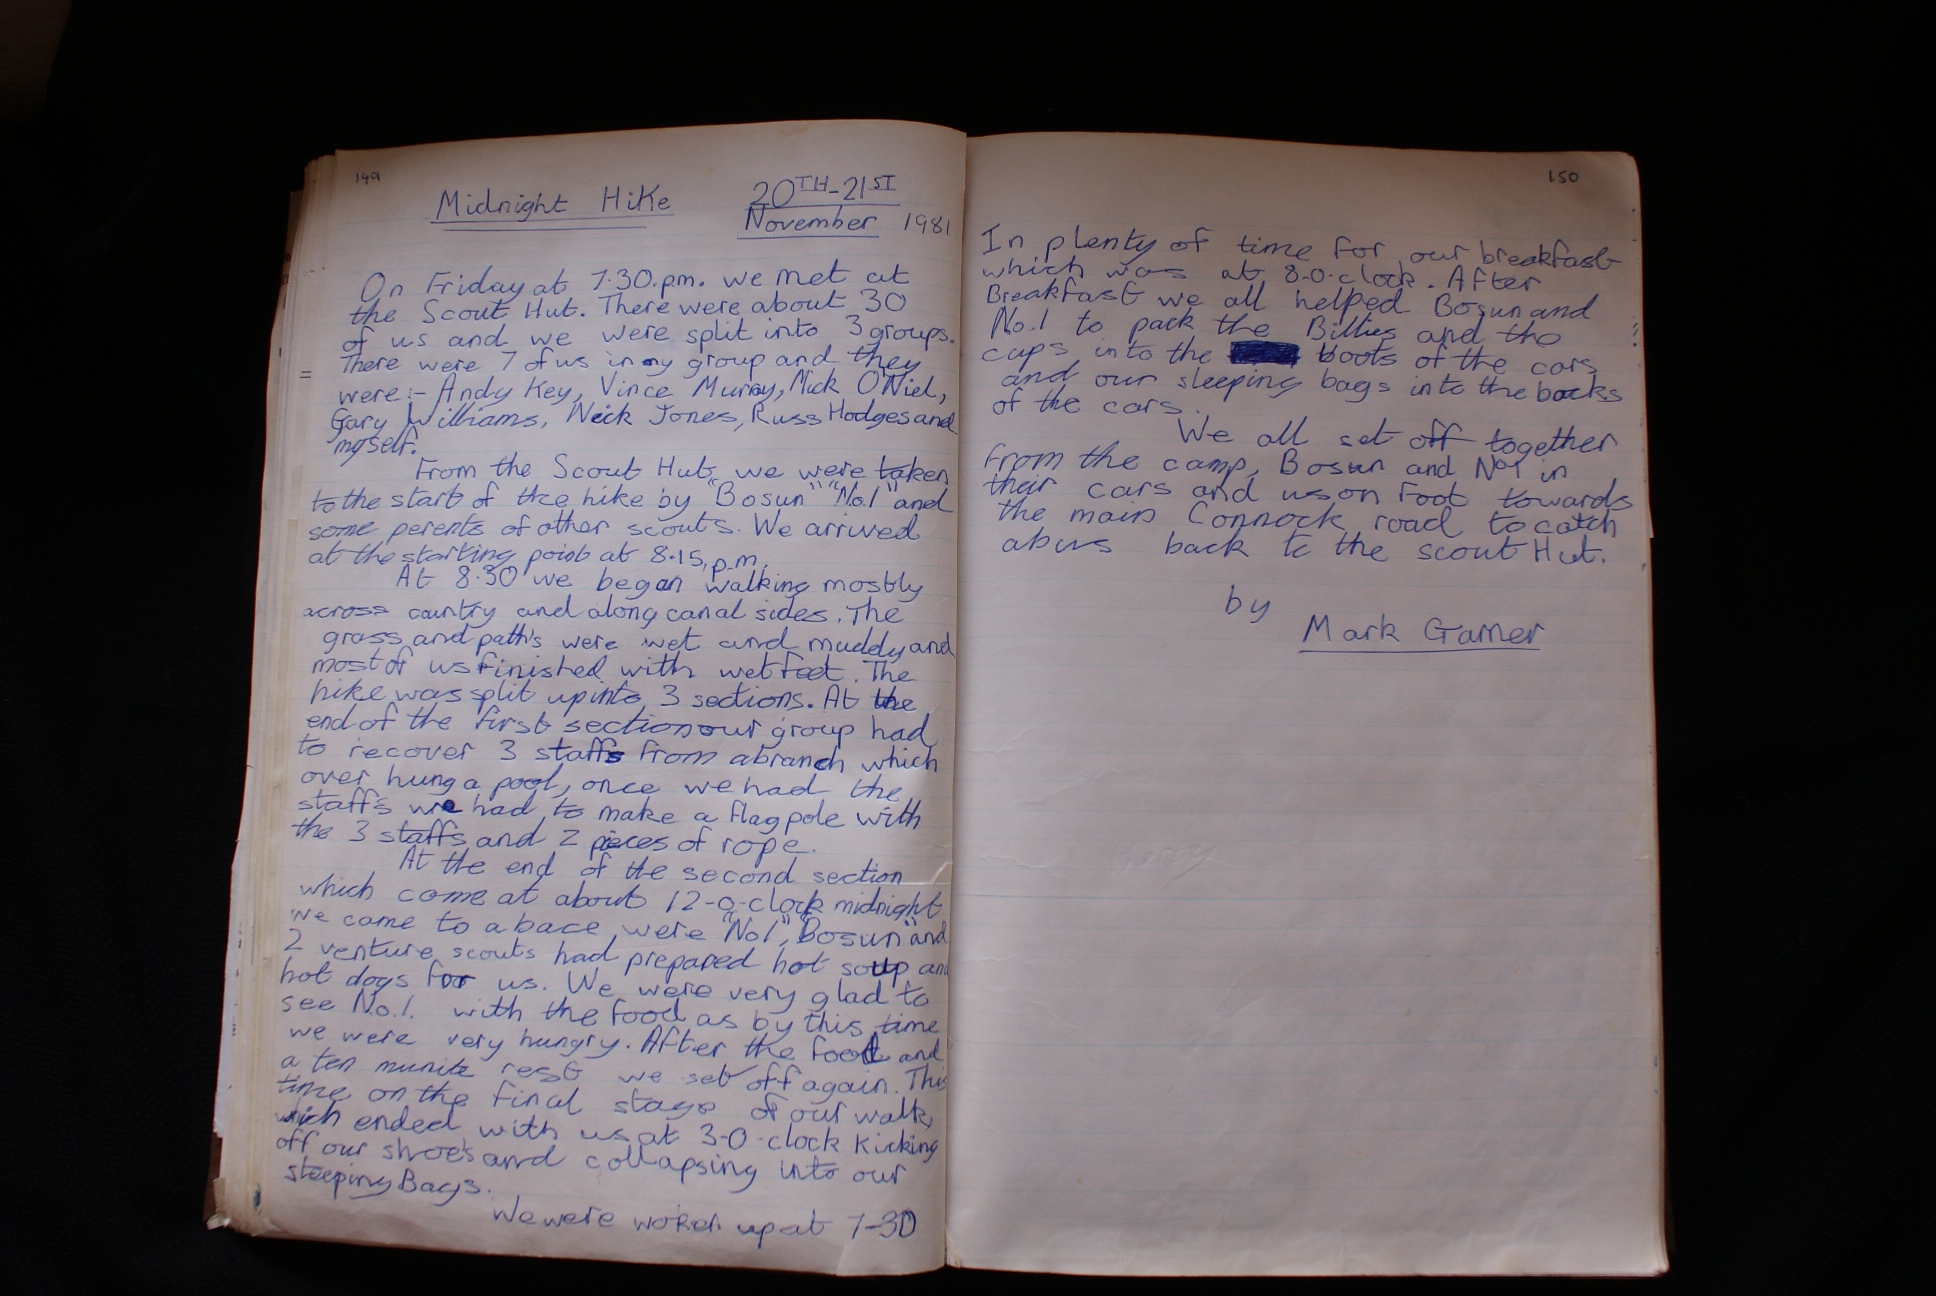 149
Midnight Hike 20TH-21ST
November 1981
On Friday at 7.30.p.m. we met at
the Scout Hut. There were about 30
of us and we were split into 3 groups.
There were 7 of us in my group and they
were:- Andy Key, Vince Murray, Mick O'Niel,
Gary Williams, Nick Jones, Russ Hodges and
myself.
From the Scout Hut, we were taken
to the start of the hike by "Bosun" "No.1" and
some perents of other scouts. We arrived
at the starting point at 8.15, p.m.
At 8.30 we began walking mostly
across country and along canal sides. The
grass and path's were wet and muddy and
most of us finished with wet feet. The
hike was split up into 3 sections. At the
end of the first section our group had
to recover 3 staffs from a branch which
over hung a pool, once we had the
staffs we had to make a flagpole with
the 3 staffs and 2 pieces of rope.
At the end of the second section
which come at about 12-o-clock midnight
we came to a bace were "No1", "Bosun" and
2 venture scouts had prepared hot soup and
hot dogs for us. We were very glad to
see No.1. with the food as by this time
we were very hungry. After the food and
a ten munite rest we set off again. This
time on the final stage of our walk,
wich ended with us at 3-0-clock kicking
off our shoe's and collapsing into our
sleeping Bags.
We were woken up at 7-30
150
In plenty of time for our breakfast
which was at 8-0-clock. After
Breakfast we all helped Bosun and
No.1 to pack the Billies and the
cups into the boots of the cars
and our sleeping bags into the backs
of the cars.
We all set off together
from the camp, Bosun and No1 in
their cars and us on foot towards
the main Connock road to catch
a bus back to the scout Hut.
by
Mark Garner